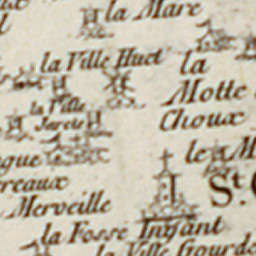 la Mare
la Ville Huet
la
Motte
Choux
la Ville
Jareis
le M
ogue
ereaux
Merveille
St.
la Fosse Ingant
la Ville Gourde